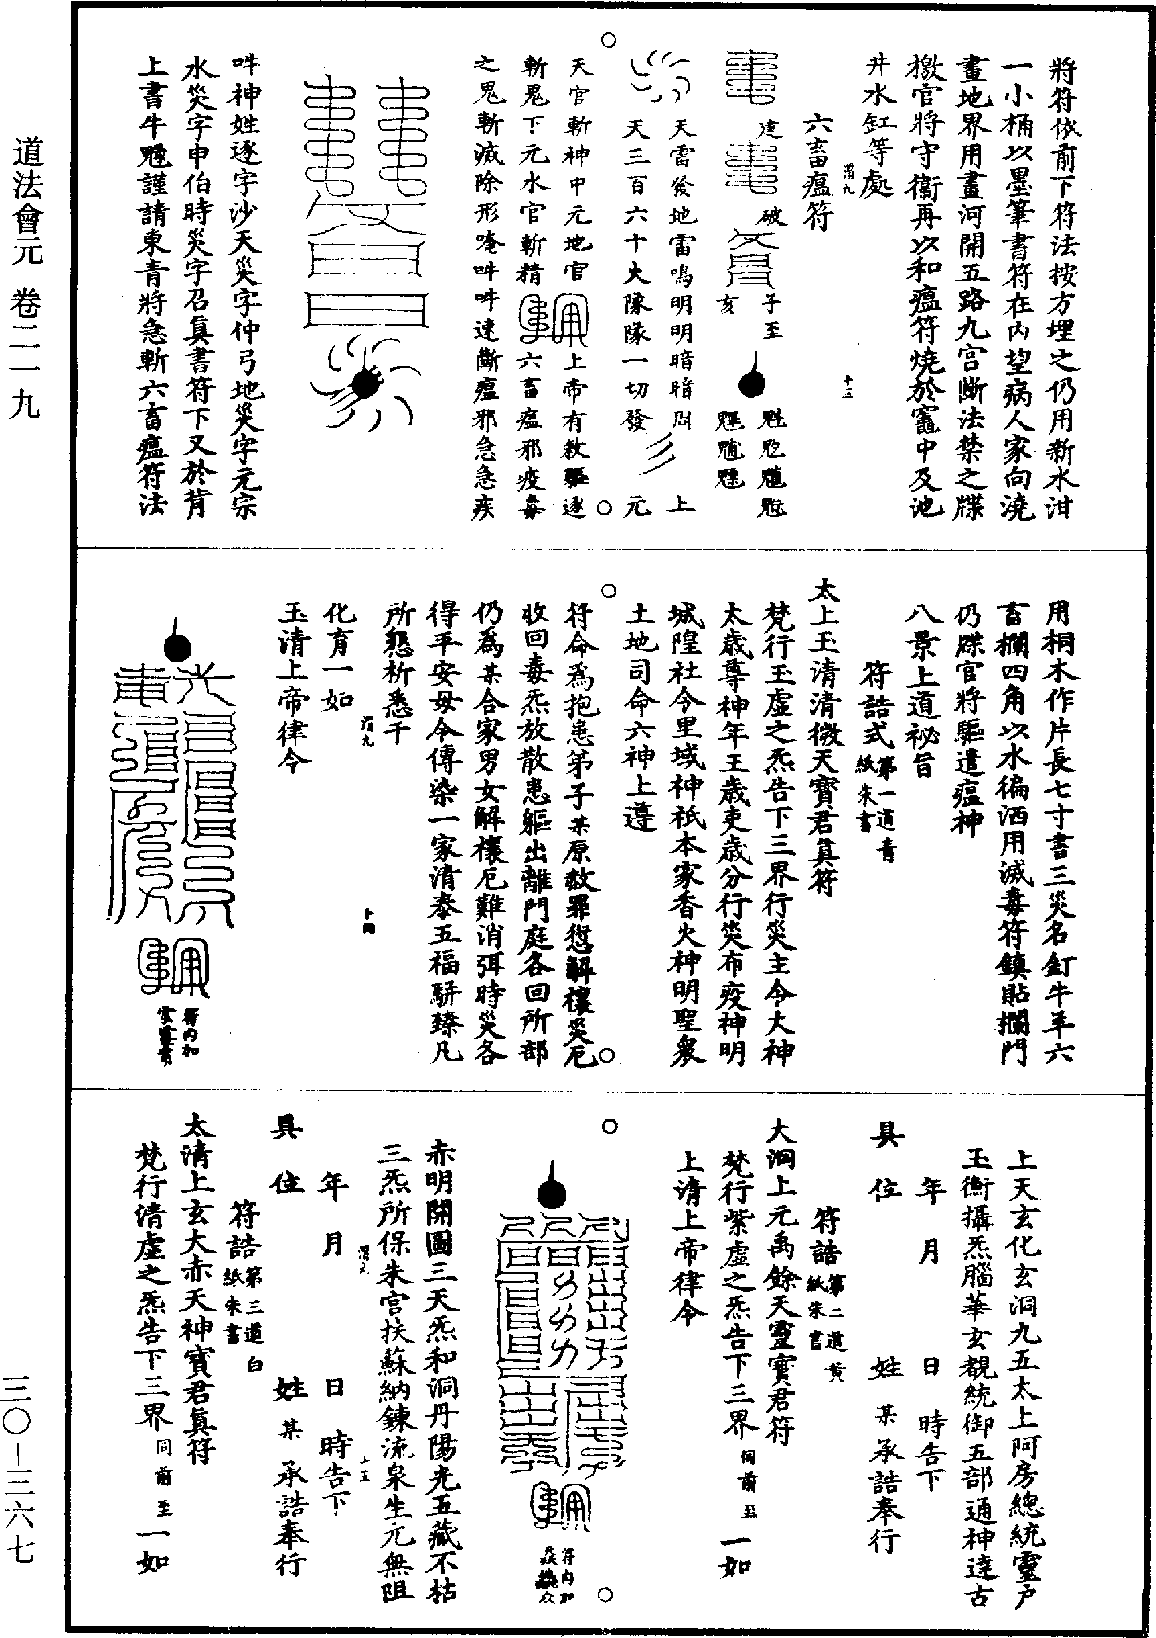 道法會元 卷二一九
三〇－三六七
將符依前下符法按方埋之仍用新水泔
一小桶以墨筆書符在內望病人家向澆
畫地界用畫河開五路九宮斷法禁之牒
檄官將守衞再以和瘟符燒於竈中及池
井水缸等處
六畜瘟符
建 破 子至
亥
天雷發地雷鳴明明暗暗 上
天三百六十大隊隊一切發 元
天官斬神中元地官 上帝有敕驅逐
斬鬼下元水官斬精 六畜瘟邪疫毒
之鬼斬滅除形唵吽吽速斷瘟邪急急疾
吽神姓逐字沙天災字仲弓地災字元宗
水災字申伯時災字召眞書符下又於背
上書牛魓謹請東青將急斬六畜瘟符法
用桐木作片長七寸書三災名釘牛羊六
畜欄四角以水徧洒用滅毒符鎮貼攔門
仍牒官將驅遣瘟神
八景上道祕旨
符誥式第一道青紙朱書
太上玉清清微天寶君眞符
梵行玉虛之炁告下三界行災主令大神
太歲尊神年王歲吏歲分行災布疫神明
城隍社令里域神祇本家香火神明聖衆
土地司命六神上遵
符命爲抱患弟子某原赦罪愆解禳災厄
收回毒炁放散患軀出離門庭各回所部
仍爲某合家男女解禳厄難消弭時災各
得平安毋令傳染一家清泰五福駢臻凡
所懇祈悉干
化育一如
玉清上帝律令
符內和
上天玄化玄洞九五太上阿房總統靈戶
玉衡攝炁腦華玄覩統御五部通神達古
年 月 日 時告下
具 位 姓 某 承誥奉行
符誥第二道黃紙朱書
大洞上元禹餘天靈寶君符
梵行紫虛之炁告下三界同前至一如
上清上帝律令
符內和
赤明開圖三天炁和洞丹陽光五藏不枯
三炁所保朱宮扶蘇納鍊流泉生元無阻
年 月 日 時告下
具 位 姓 某 承誥奉行
符誥第三道白紙朱書
太清上玄大赤天神寶君眞符
梵行清虛之炁告下三界同前至一如